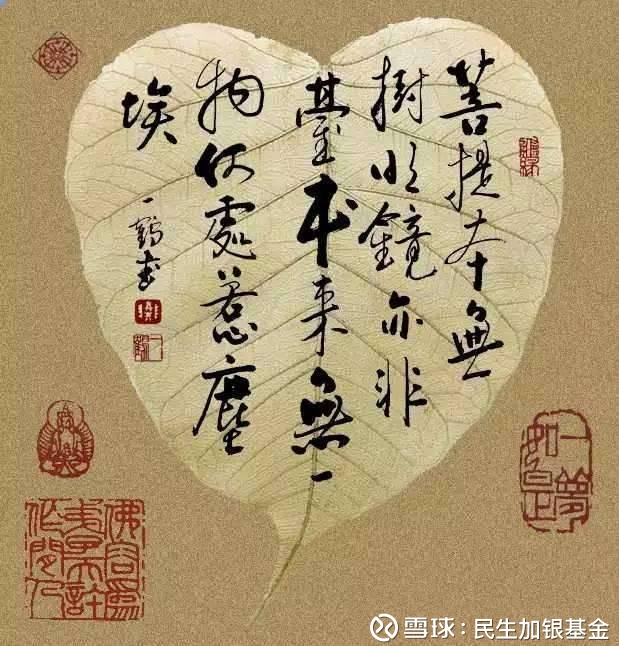 菩提本無
樹明鏡亦非
臺本来無一
物何處惹塵
埃
一鶴書
一夢如是
雪球：民生加银基金